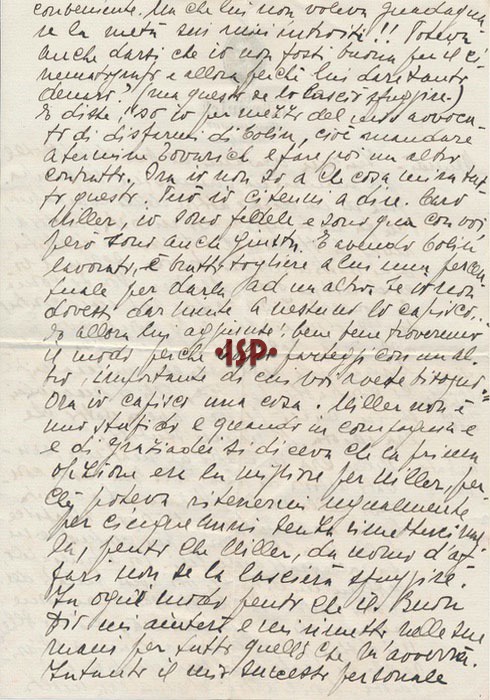 conveniente. Ma che lui non voleva guadagna-
re la metà sui miei introiti!! Poteva
anche darsi che io non fossi buona per il ci-
nematografo e allora perchè lui darsi tanto
denaro? (ma questo se lo lasciò sfuggire)
E disse, so io per mezzo del mio avvoca-
to di disfarmi di Colin, cioè mandare
a termine e fare poi un altro
contratto. Ora io non so a che cosa
to questo. Però io ci tenni a dire. Caro
Miller, io sono fedele e sono qua con voi,
però sono anche giusta. E avendo Colin
lavorato, è brutto togliere a lui una percen-
tuale per darla ad un altro. Se io non
dovessi dar niente a nessuno lo capisco...
E allora lui aggiunse: bene bene troveremo
il modo perchè con un al-
tro, importante di cui voi avete bisogno."
Ora io capisco una cosa. Miller non è
uno stupido e quando in compagnia
e di Graziadei si diceva che la prima
opzione era la migliore per Miller, per-
chè poteva ritenermi ugualmente
per cinque anni senza rimetterci nul-
la, penso che Miller, da uomo d'af-
fari non se la lascierà sfuggire.
In ogni modo penso che il Buon
Dio mi aiuterà e mi rimetto nelle sue
mani per tutto quello che m'avverrà.
Intanto il mio successo personale
ISP